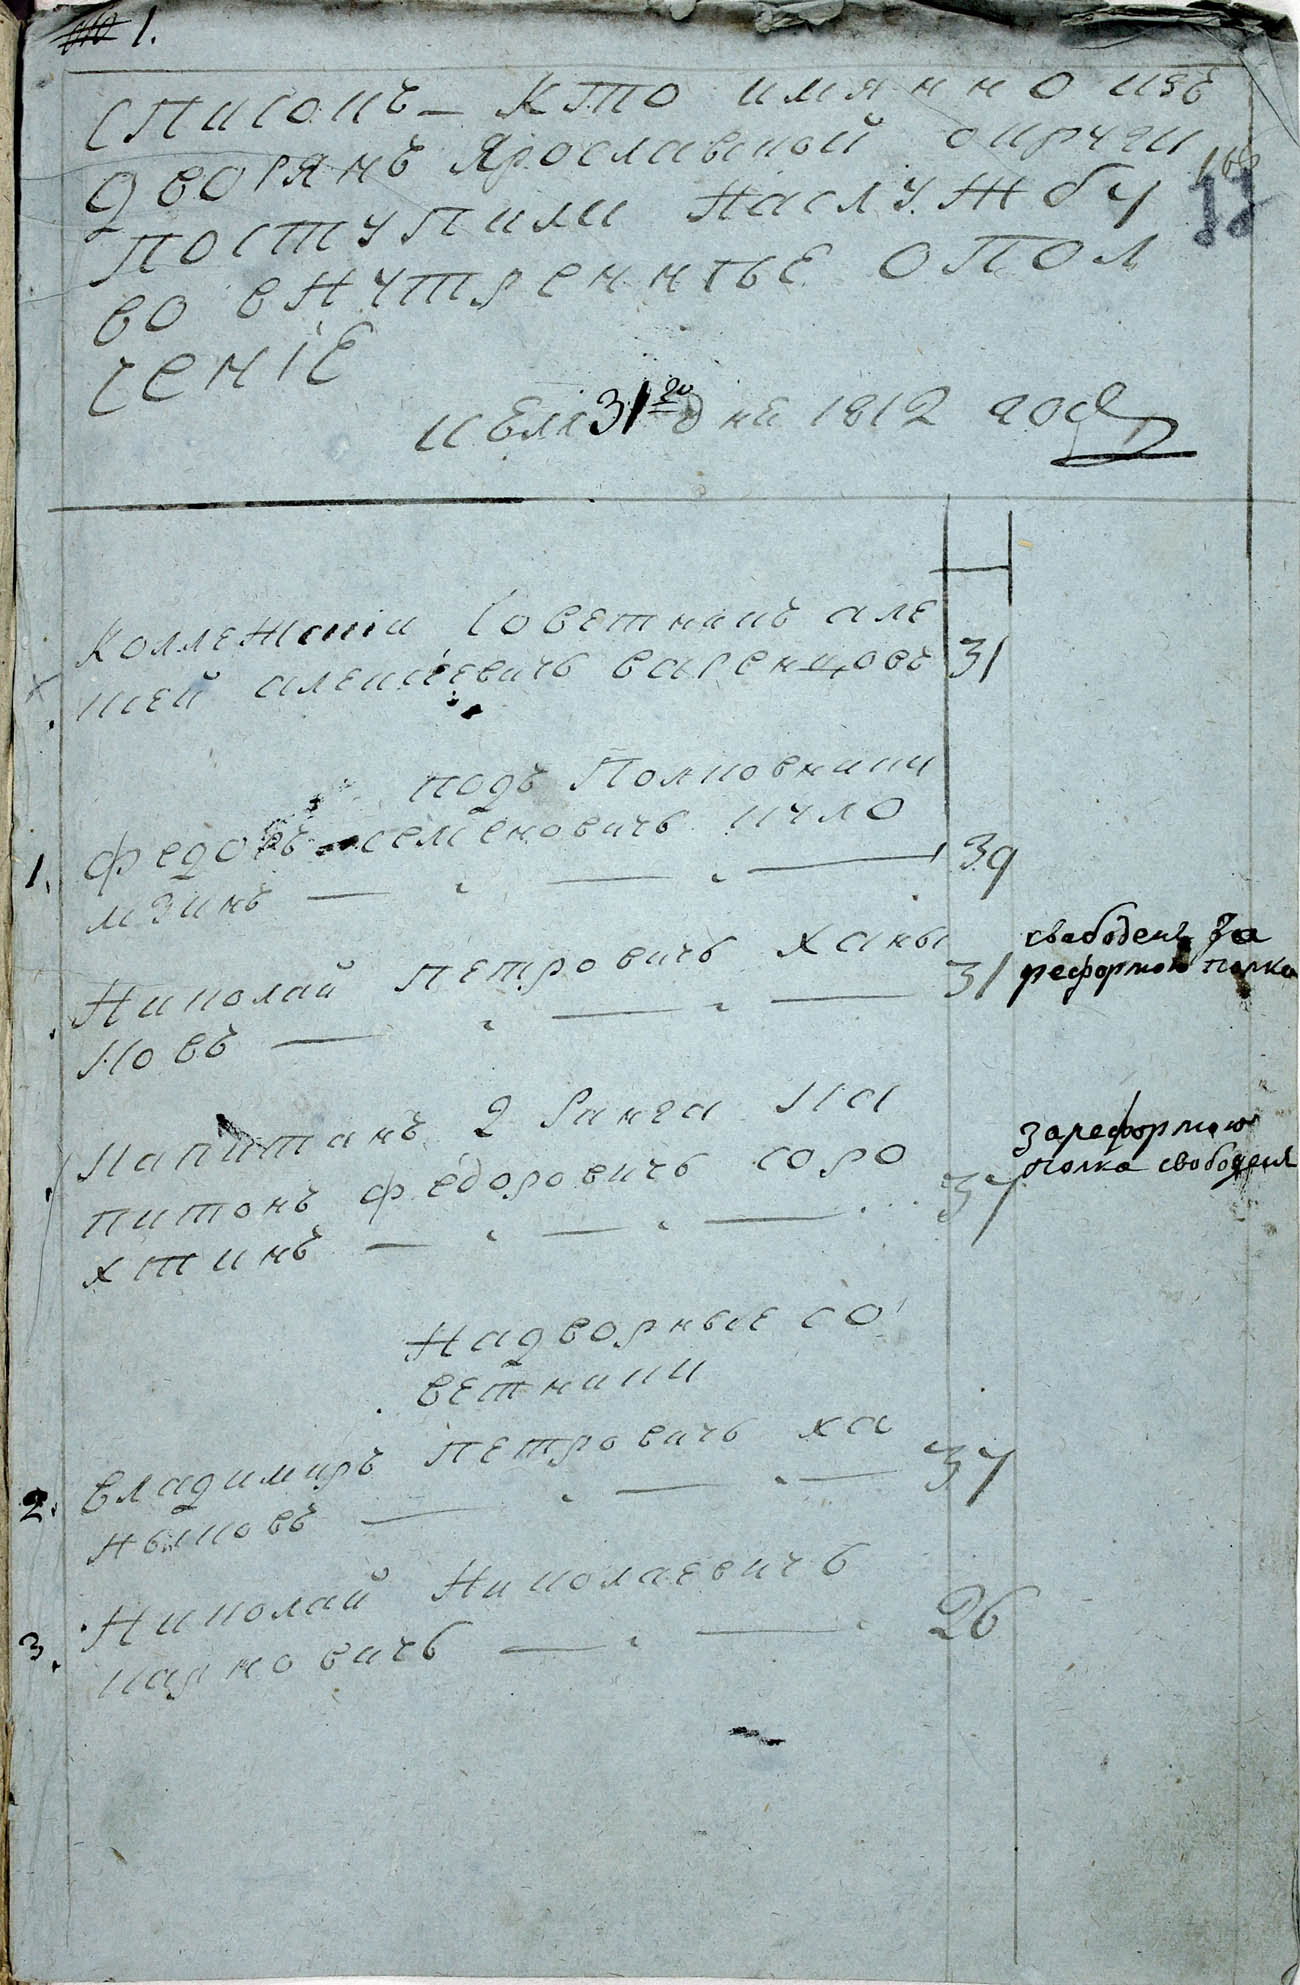 1.
Списокъ – кто имянно изъ
дворянъ Ярославской округи
поступили на службу
во внутреннъе опол
ченіе
июля 31го дня 1812 года
Коллежскіи Советникъ але
ксей алексеевичъ варенцовъ 31
подъ Полковники
1. федоръ семеновичъ куло
мзинъ 39
Николай петровичъ ханы
ковъ 31
свабоденъ за
реформою полка
Капитанъ 2 Ранга Ка
питонъ федоровичъ соро
хтинъ 37
зареформою
полка свободенъ
Надворные со
ветники
2. владимиръ петровичъ ха
ныковъ 37
3. Николай Николаевичъ
карновичъ 26